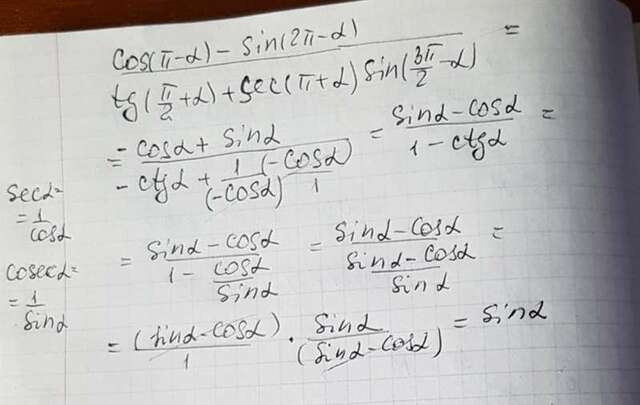 cos(π-α) - sin(2π-α) =
tg(π/2+α) + sec(π+α) sin(3π/2-α)
= -cosα + sinα = sinα - cosα =
-ctgα + 1/(-cosα) (-cosα)/1 1 - ctgα
secα=
= 1/cosα
= sinα - cosα = sinα - cosα =
1 - cosα/sinα (sinα - cosα)/sinα
cosecα=
= 1/sinα
= (sinα-cosα)/1 · sinα/(sinα-cosα) = sinα